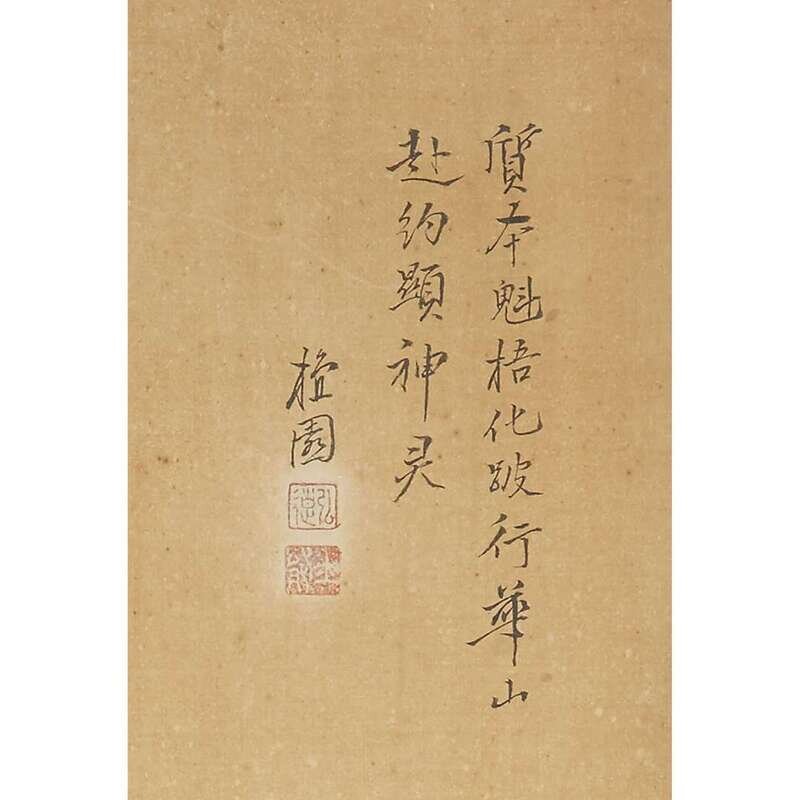 質本魁梧化跛行華山
赴約顯神灵
園
弘德